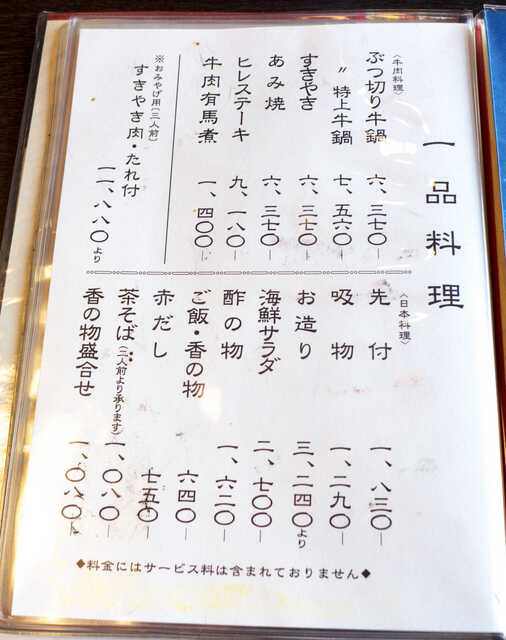 一品料理
〈牛肉料理〉
ぶつ切り牛鍋 六、三七〇−
〃 特上牛鍋 七、五六〇−
すきやき 六、三七〇−
あみ焼 六、三七〇−
ヒレステーキ 九、一八〇−
牛肉有馬煮 一、四〇〇−
※おみやげ用(三人前)
すきやき肉・たれ付 一一、八八〇より
〈日本料理〉
先付 一、八三〇−
吸物 一、二九〇−
お造り 三、二四〇より
海鮮サラダ 二、七〇〇−
酢の物 一、六二〇−
ご飯・香の物 六四〇−
赤だし 七五〇−
茶そば…(二人前より承ります) 一、〇八〇−
香の物盛合せ 一、〇八〇−
◆料金にはサービス料は含まれておりません◆